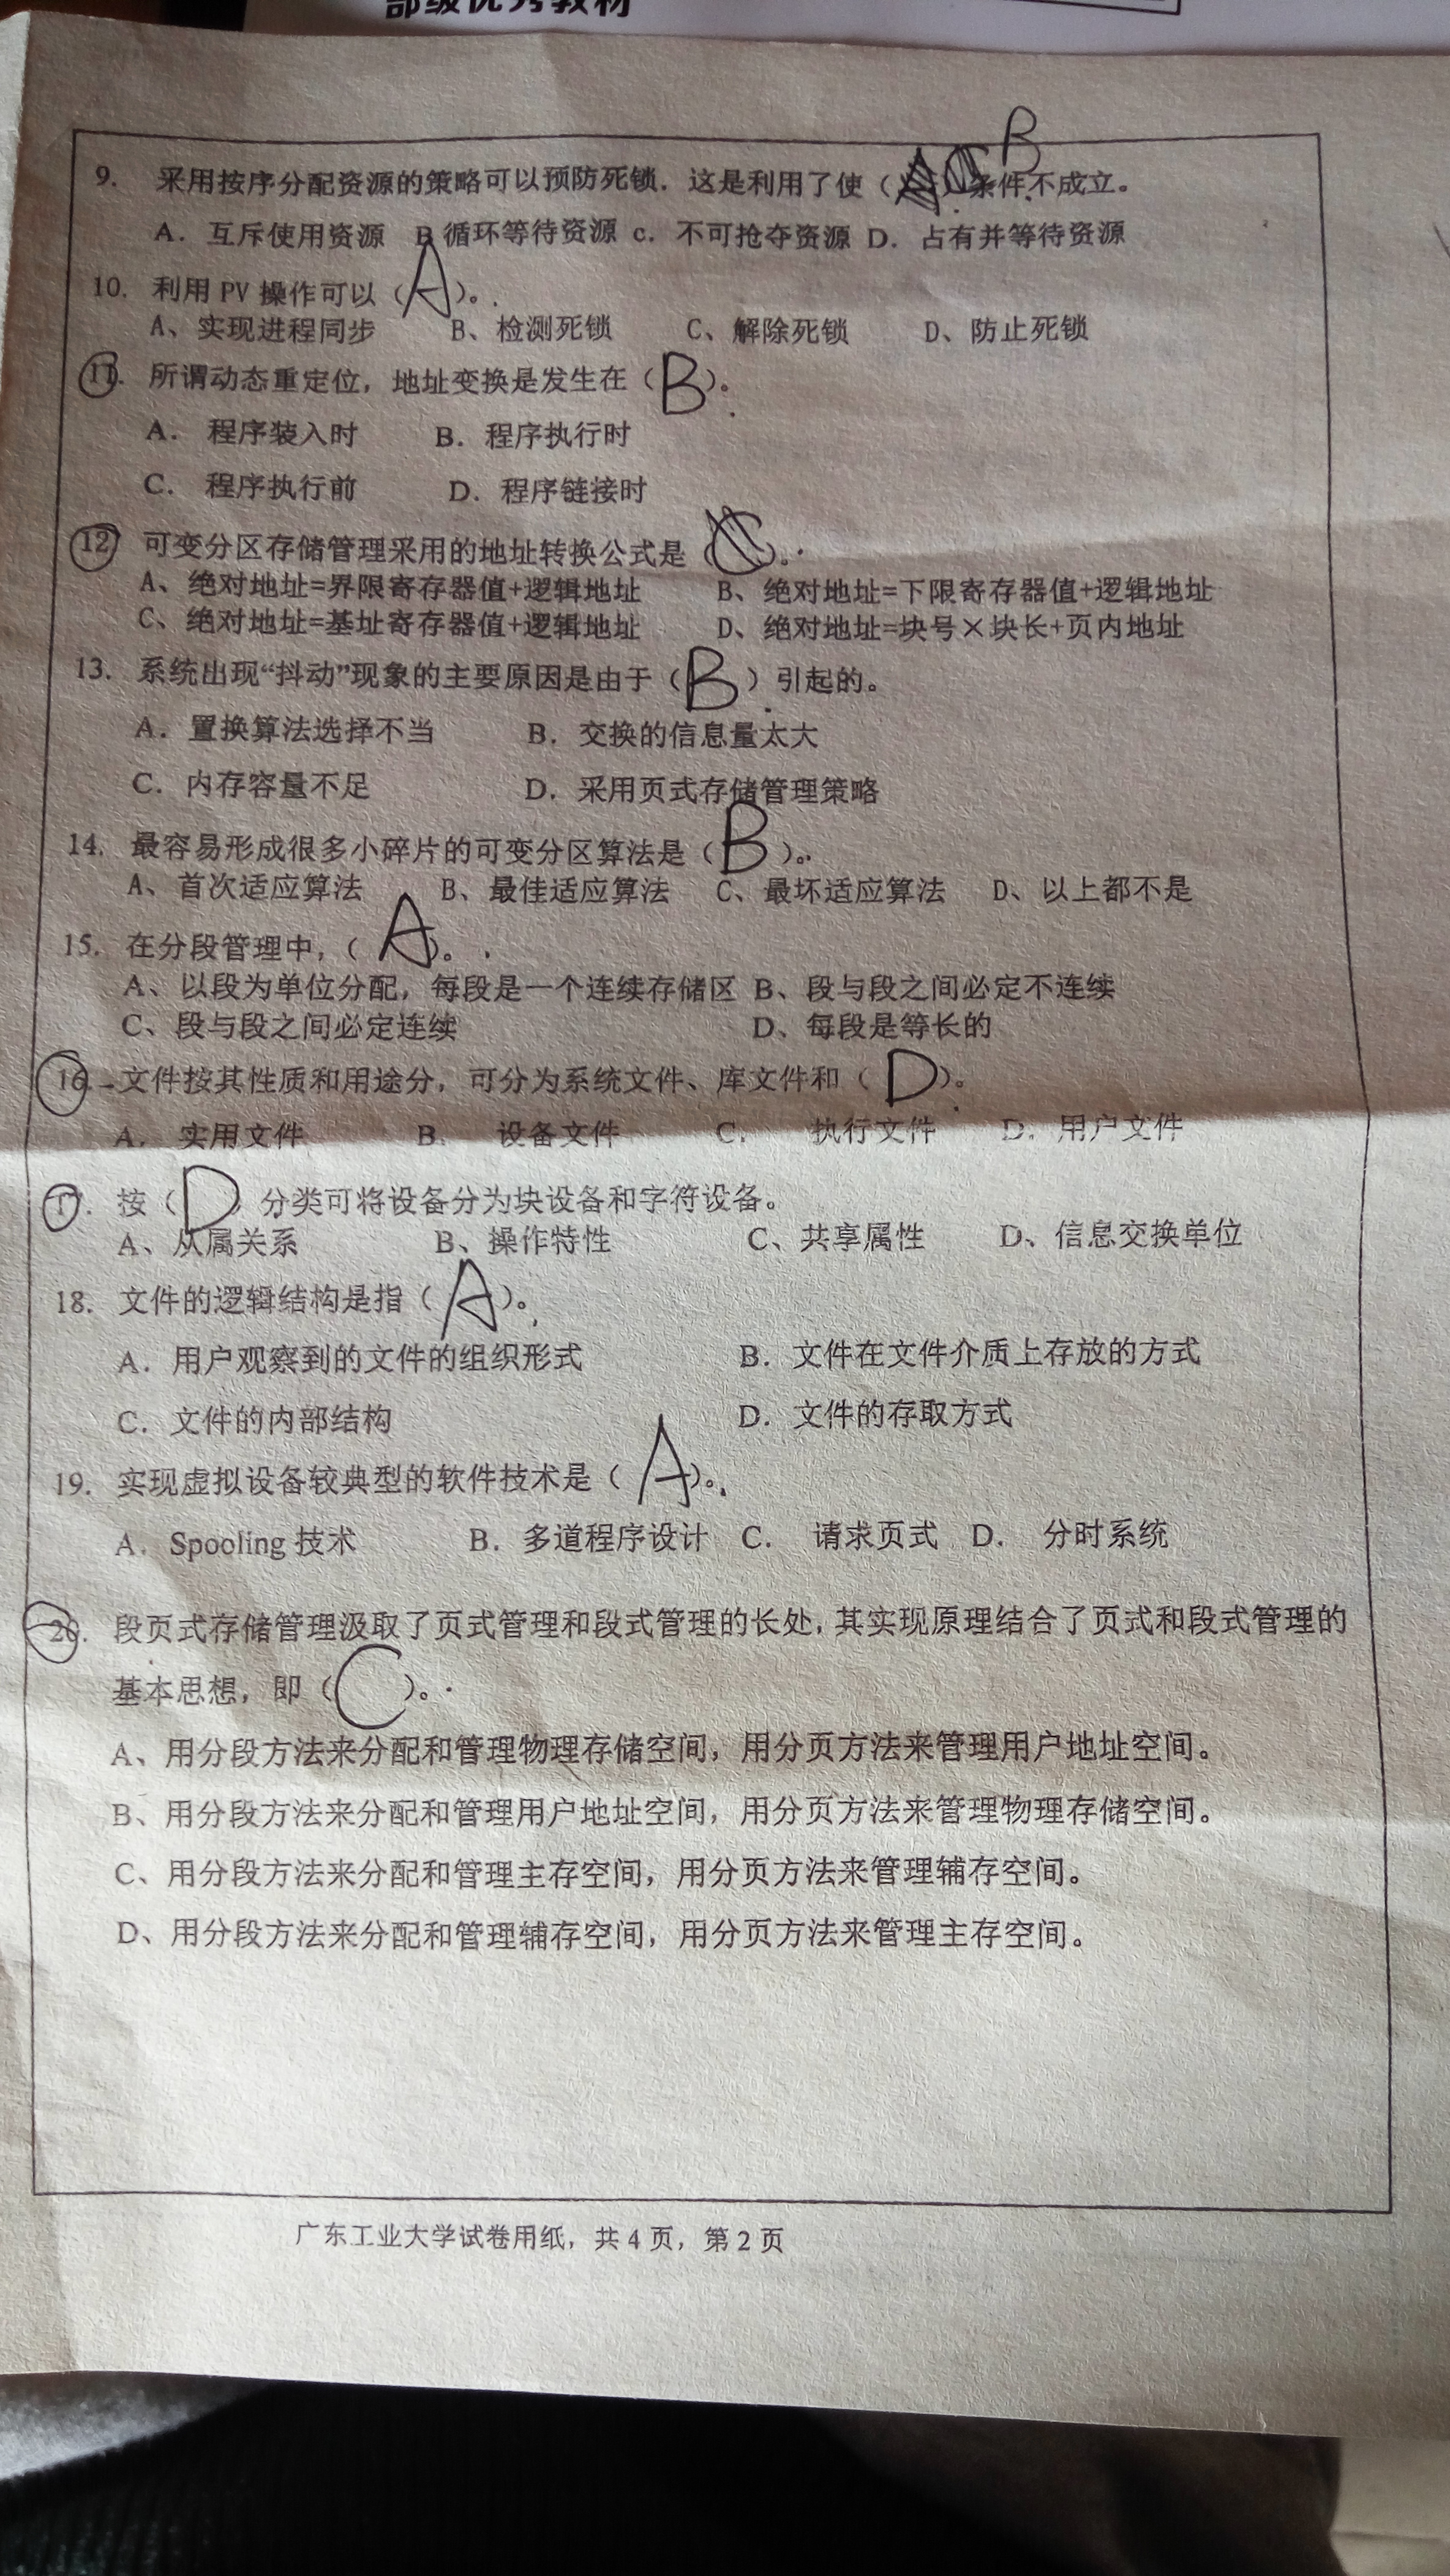 部级优秀教材
9. 采用按序分配资源的策略可以预防死锁. 这是利用了使（ B ）条件不成立。
A. 互斥使用资源 B 循环等待资源 c. 不可抢夺资源 D. 占有并等待资源
10. 利用 PV 操作可以（ A ）。
A、实现进程同步 B、检测死锁 C、解除死锁 D、防止死锁
11. 所谓动态重定位，地址变换是发生在（ B ）。
A. 程序装入时 B. 程序执行时
C. 程序执行前 D. 程序链接时
12 可变分区存储管理采用的地址转换公式是（ C ）。
A、绝对地址=界限寄存器值+逻辑地址 B、绝对地址=下限寄存器值+逻辑地址
C、绝对地址=基址寄存器值+逻辑地址 D、绝对地址=块号×块长+页内地址
13. 系统出现“抖动”现象的主要原因是由于（ B ）引起的。
A. 置换算法选择不当 B. 交换的信息量太大
C. 内存容量不足 D. 采用页式存储管理策略
14. 最容易形成很多小碎片的可变分区算法是（ B ）。
A、首次适应算法 B、最佳适应算法 C、最坏适应算法 D、以上都不是
15. 在分段管理中，（ A ）。
A、以段为单位分配，每段是一个连续存储区 B、段与段之间必定不连续
C、段与段之间必定连续 D、每段是等长的
16. 文件按其性质和用途分，可分为系统文件、库文件和（ D ）。
A. 实用文件 B. 设备文件 C. 执行文件 D. 用户文件
17. 按（ D ）分类可将设备分为块设备和字符设备。
A、从属关系 B、操作特性 C、共享属性 D、信息交换单位
18. 文件的逻辑结构是指（ A ）。
A. 用户观察到的文件的组织形式 B. 文件在文件介质上存放的方式
C. 文件的内部结构 D. 文件的存取方式
19. 实现虚拟设备较典型的软件技术是（ A ）。
A. Spooling 技术 B. 多道程序设计 C. 请求页式 D. 分时系统
20. 段页式存储管理汲取了页式管理和段式管理的长处，其实现原理结合了页式和段式管理的
基本思想，即（ C ）。
A、用分段方法来分配和管理物理存储空间，用分页方法来管理用户地址空间。
B、用分段方法来分配和管理用户地址空间，用分页方法来管理物理存储空间。
C、用分段方法来分配和管理主存空间，用分页方法来管理辅存空间。
D、用分段方法来分配和管理辅存空间，用分页方法来管理主存空间。
广东工业大学试卷用纸，共 4 页，第 2 页